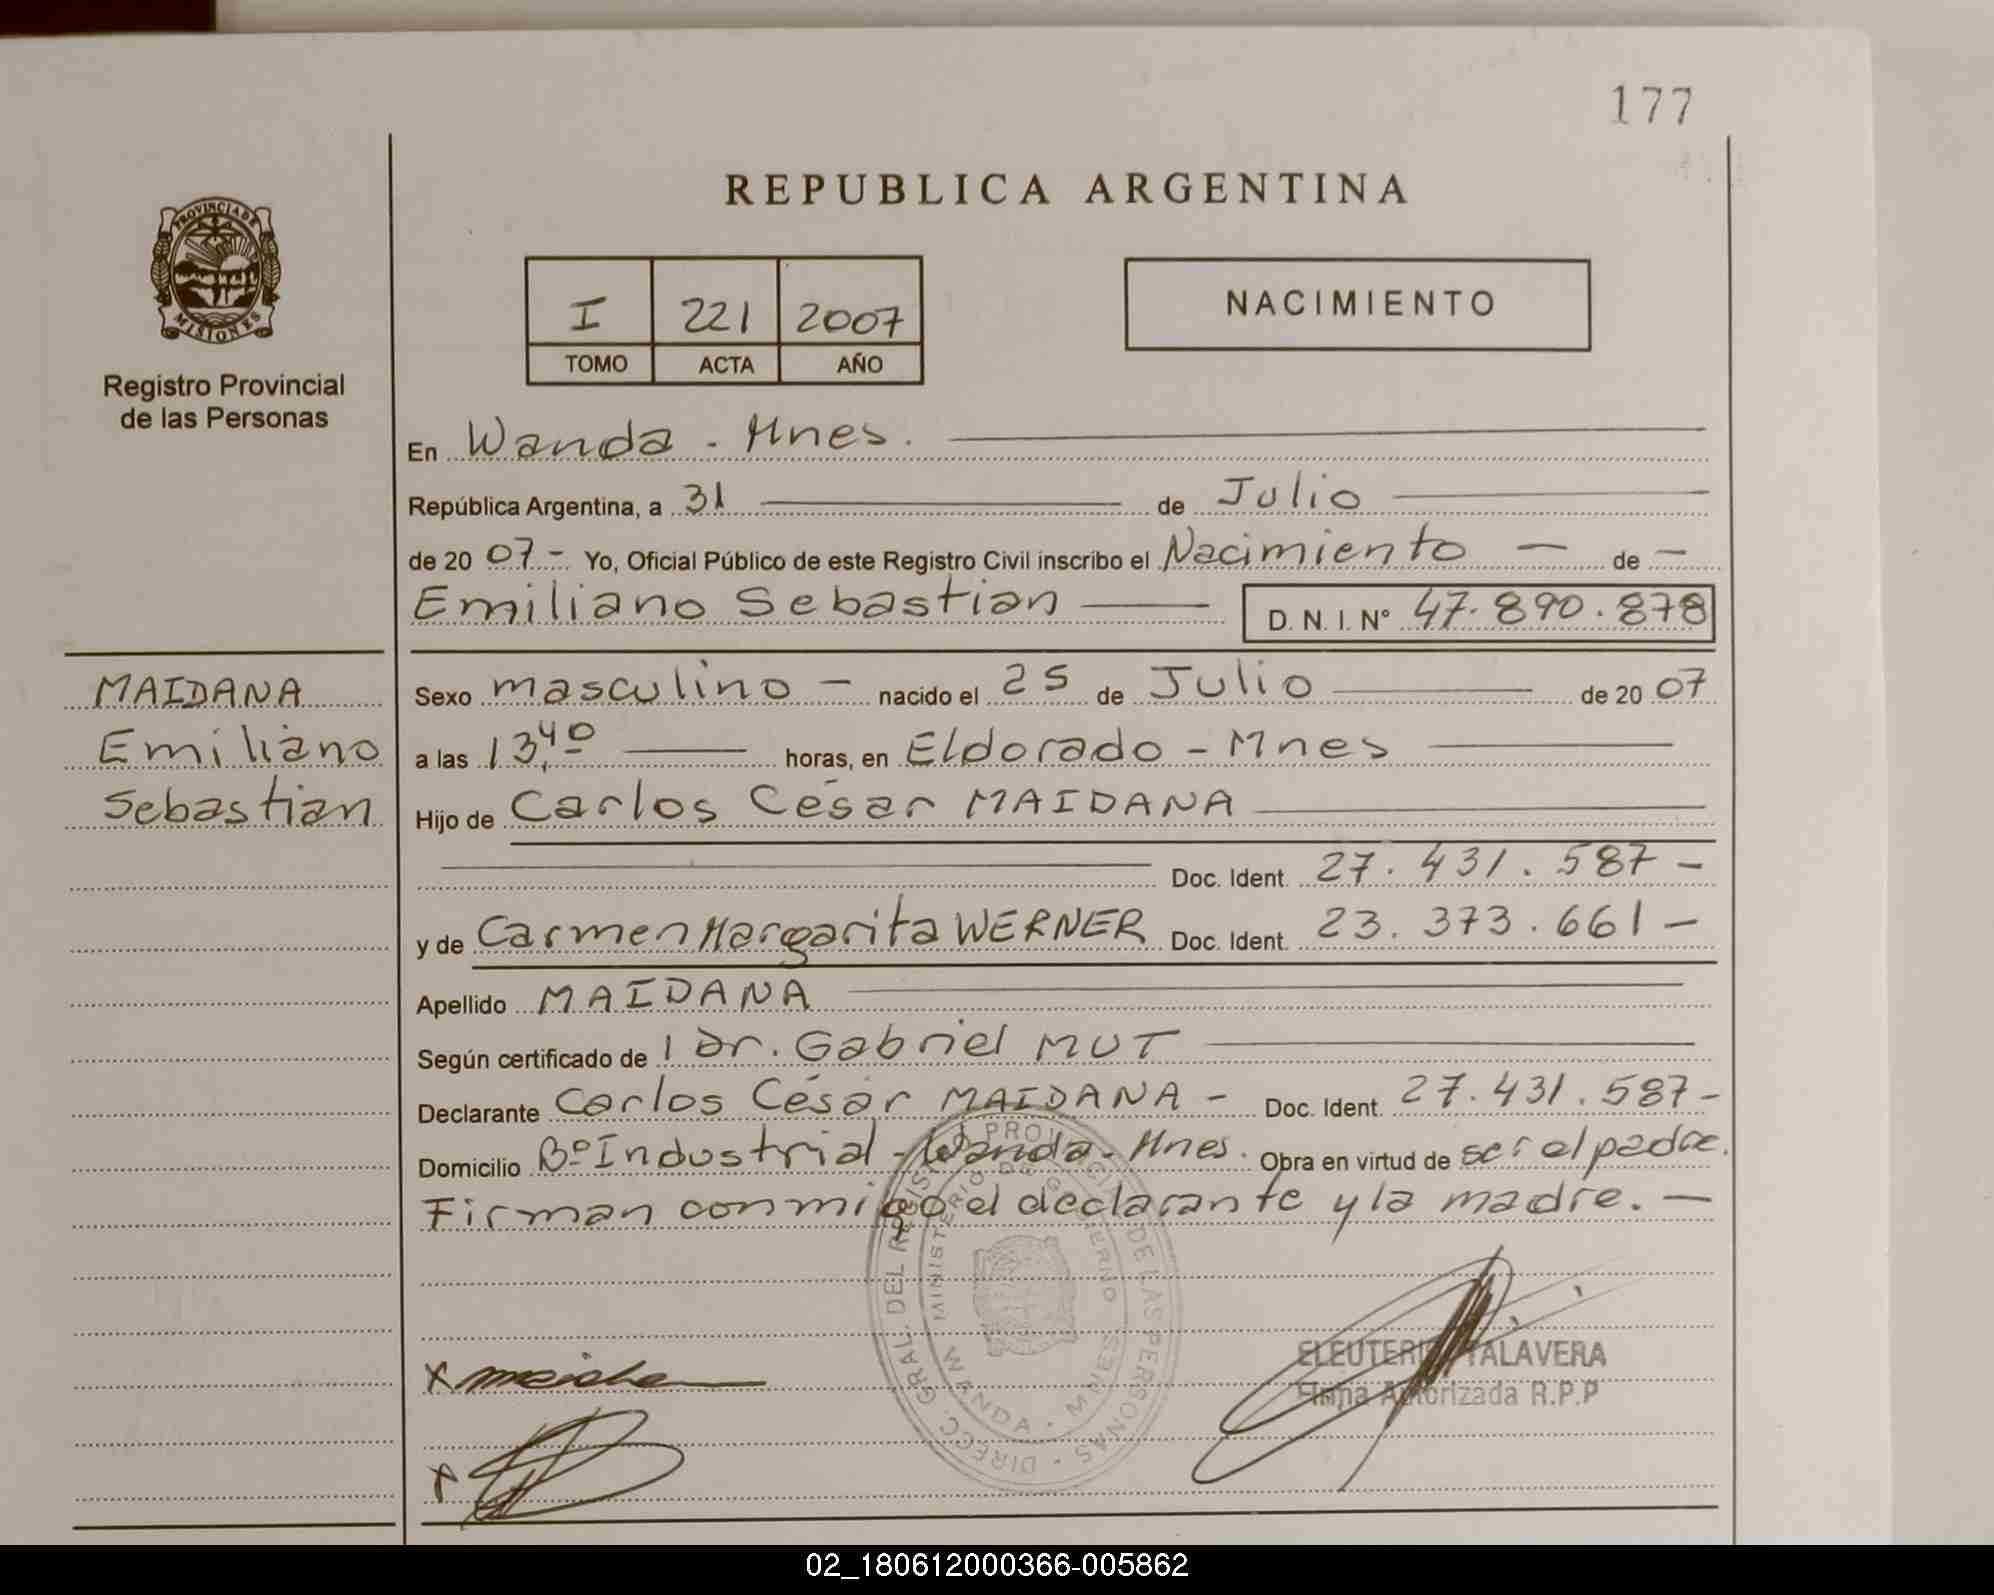 177
REPUBLICA ARGENTINA
PROVINCIA DE
MISIONES
Registro Provincial
de las Personas
I 221 2007
TOMO ACTA AÑO
NACIMIENTO
En Wanda - Mnes.
República Argentina, a 31 de Julio
de 20 07.- Yo, Oficial Público de este Registro Civil inscribo el Nacimiento — de —
Emiliano Sebastian D. N. I. N° 47.890.878
MAIDANA
Emiliano
Sebastian
Sexo masculino - nacido el 25 de Julio de 20 07
a las 13,40 horas, en Eldorado - Mnes
Hijo de Carlos César MAIDANA
Doc. Ident. 27.431.587 -
y de Carmen Margarita WERNER Doc. Ident. 23.373.661 -
Apellido MAIDANA
Según certificado de l Dr. Gabriel MUT
Declarante Carlos César MAIDANA - Doc. Ident. 27.431.587-
Domicilio Bº Industrial - Wanda - Mnes. Obra en virtud de ser el padre.
Firman conmigo el declarante y la madre. —
DIRECC. GRAL. DEL REGISTRO PROVINCIAL DE LAS PERSONAS
MINISTERIO DE GOBIERNO
WANDA - MNES
ELEUTERIO TALAVERA
Firma Autorizada R.P.P
02_180612000366-005862